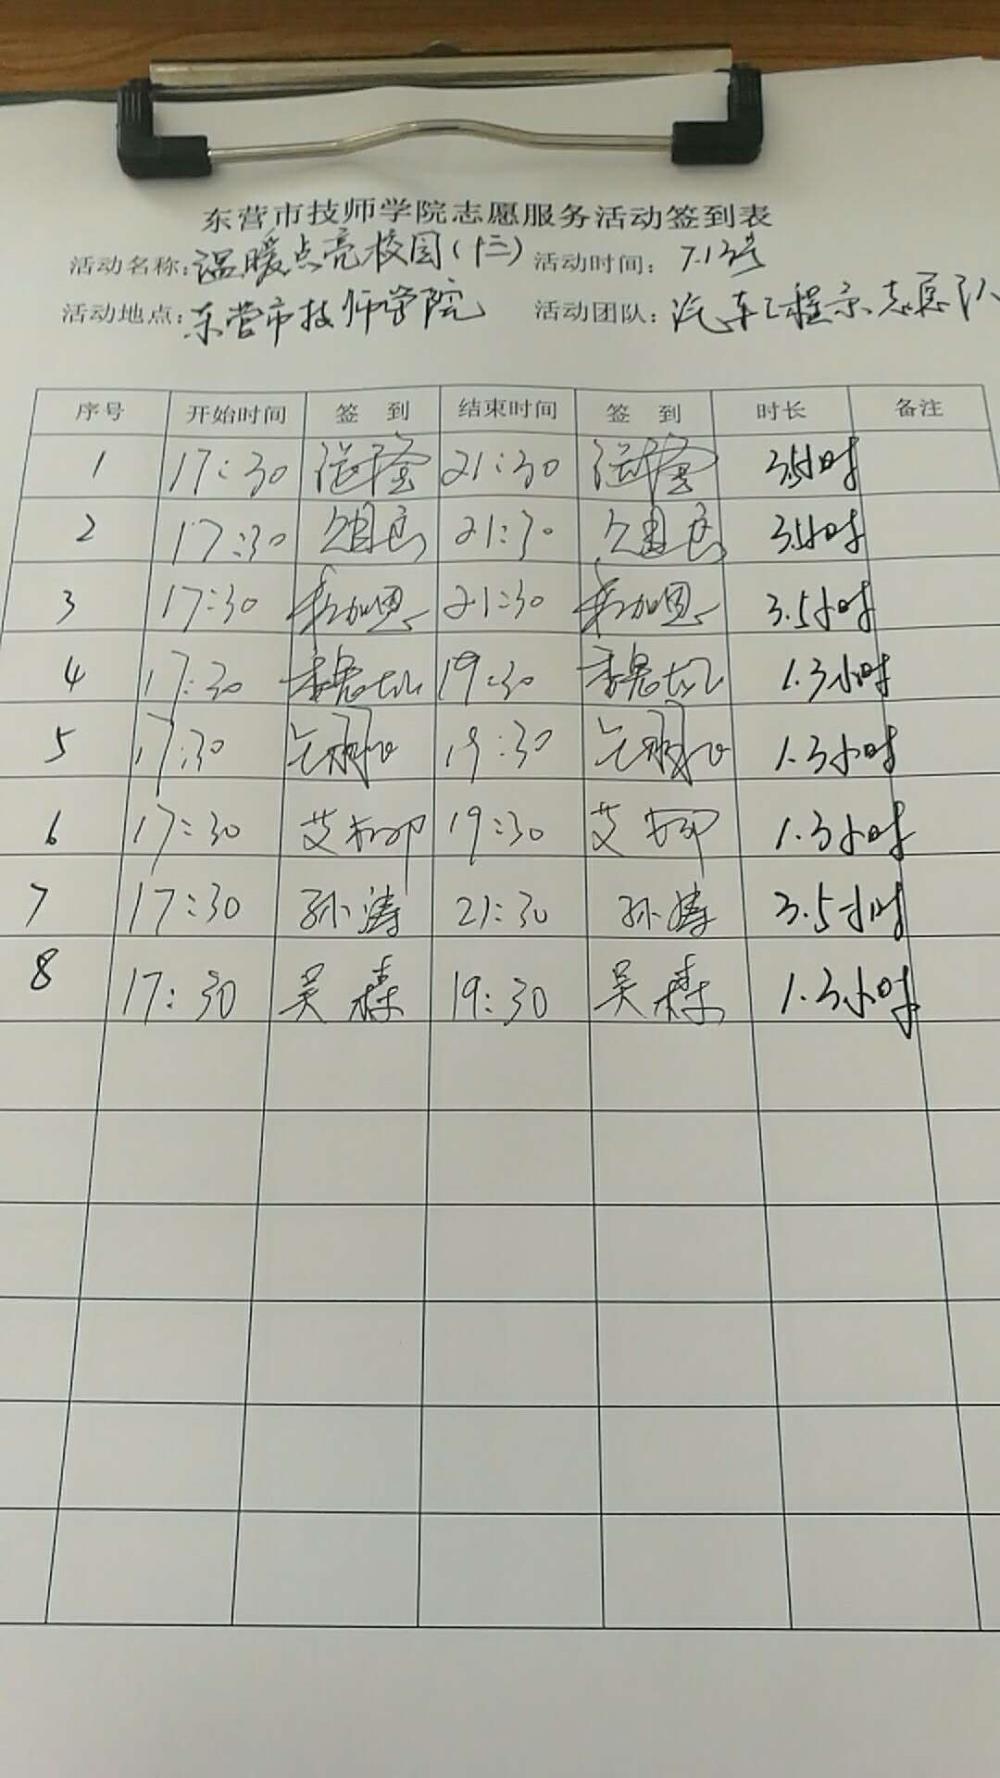 东营市技师学院志愿服务活动签到表
活动名称: 温暖点亮校园(十二) 活动时间: 7.13号
活动地点: 东营市技师学院 活动团队: 汽车工程系志愿队
序号 开始时间 签 到 结束时间 签 到 时长 备注
1 17:30 21:30 3.5小时
2 17:30 21:30 3.5小时
3 17:30 21:30 3.5小时
4 17:30 19:30 1.3小时
5 17:30 19:30 1.3小时
6 17:30 艾柳 19:30 艾柳 1.3小时
7 17:30 孙涛 21:30 孙涛 3.5小时
8 17:30 吴森 19:30 吴森 1.3小时